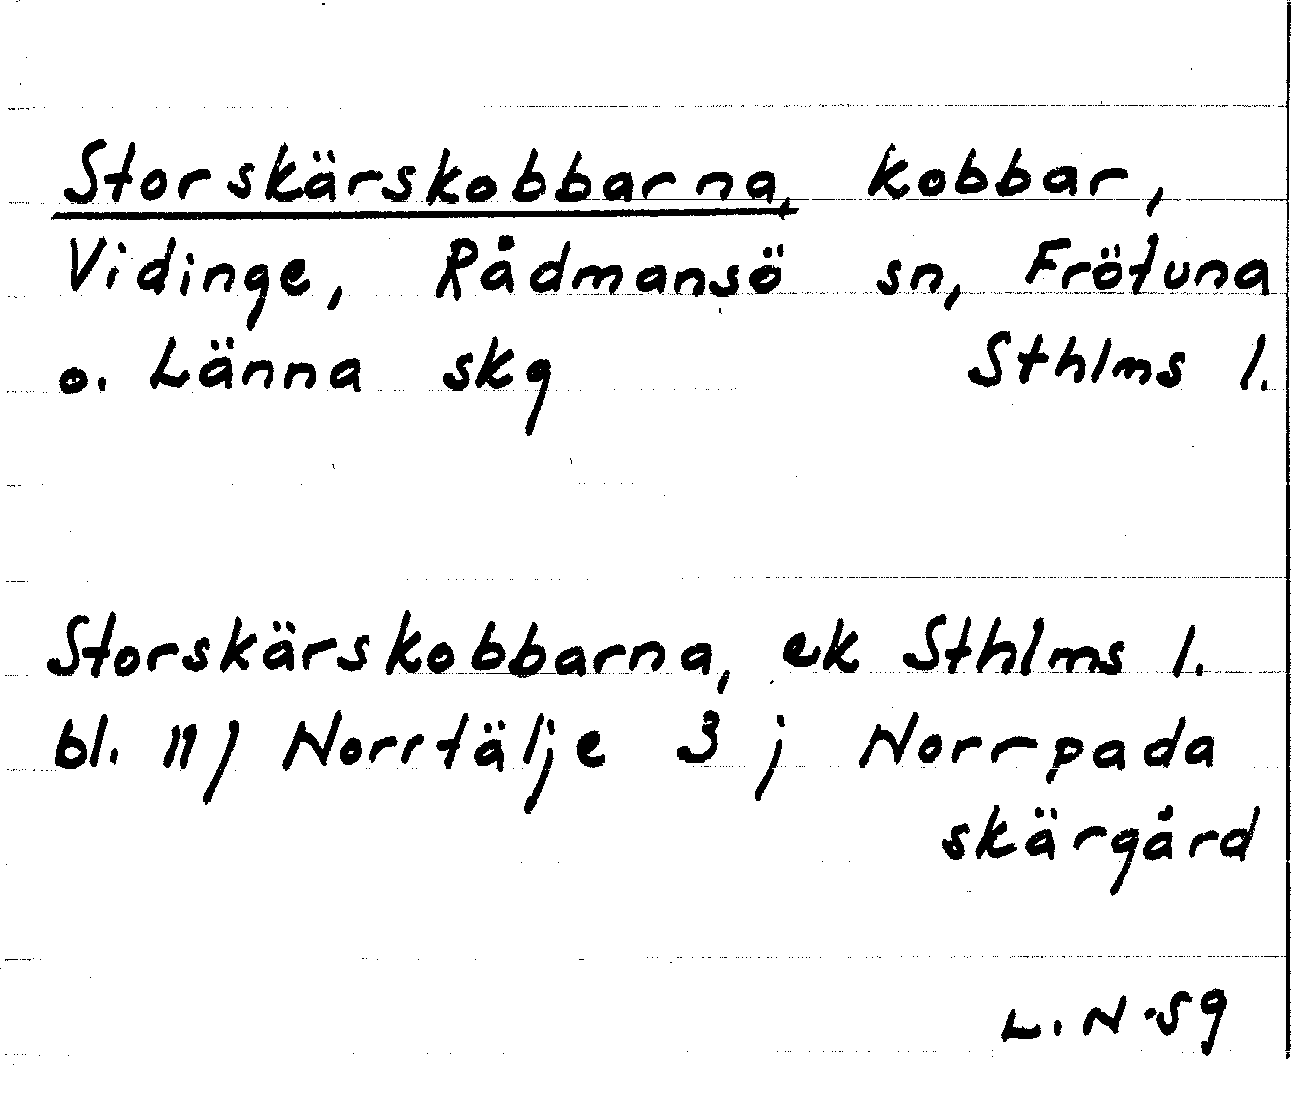 Storskärskobbarna, kobbar,
Vidinge, Rådmansö sn, Frötuna
o. Länna skg Sthlms l.
Storskärskobbarna, ek Sthlms l.
bl. 11) Norrtälje 3 ; Norrpada
skärgård
L. N -59